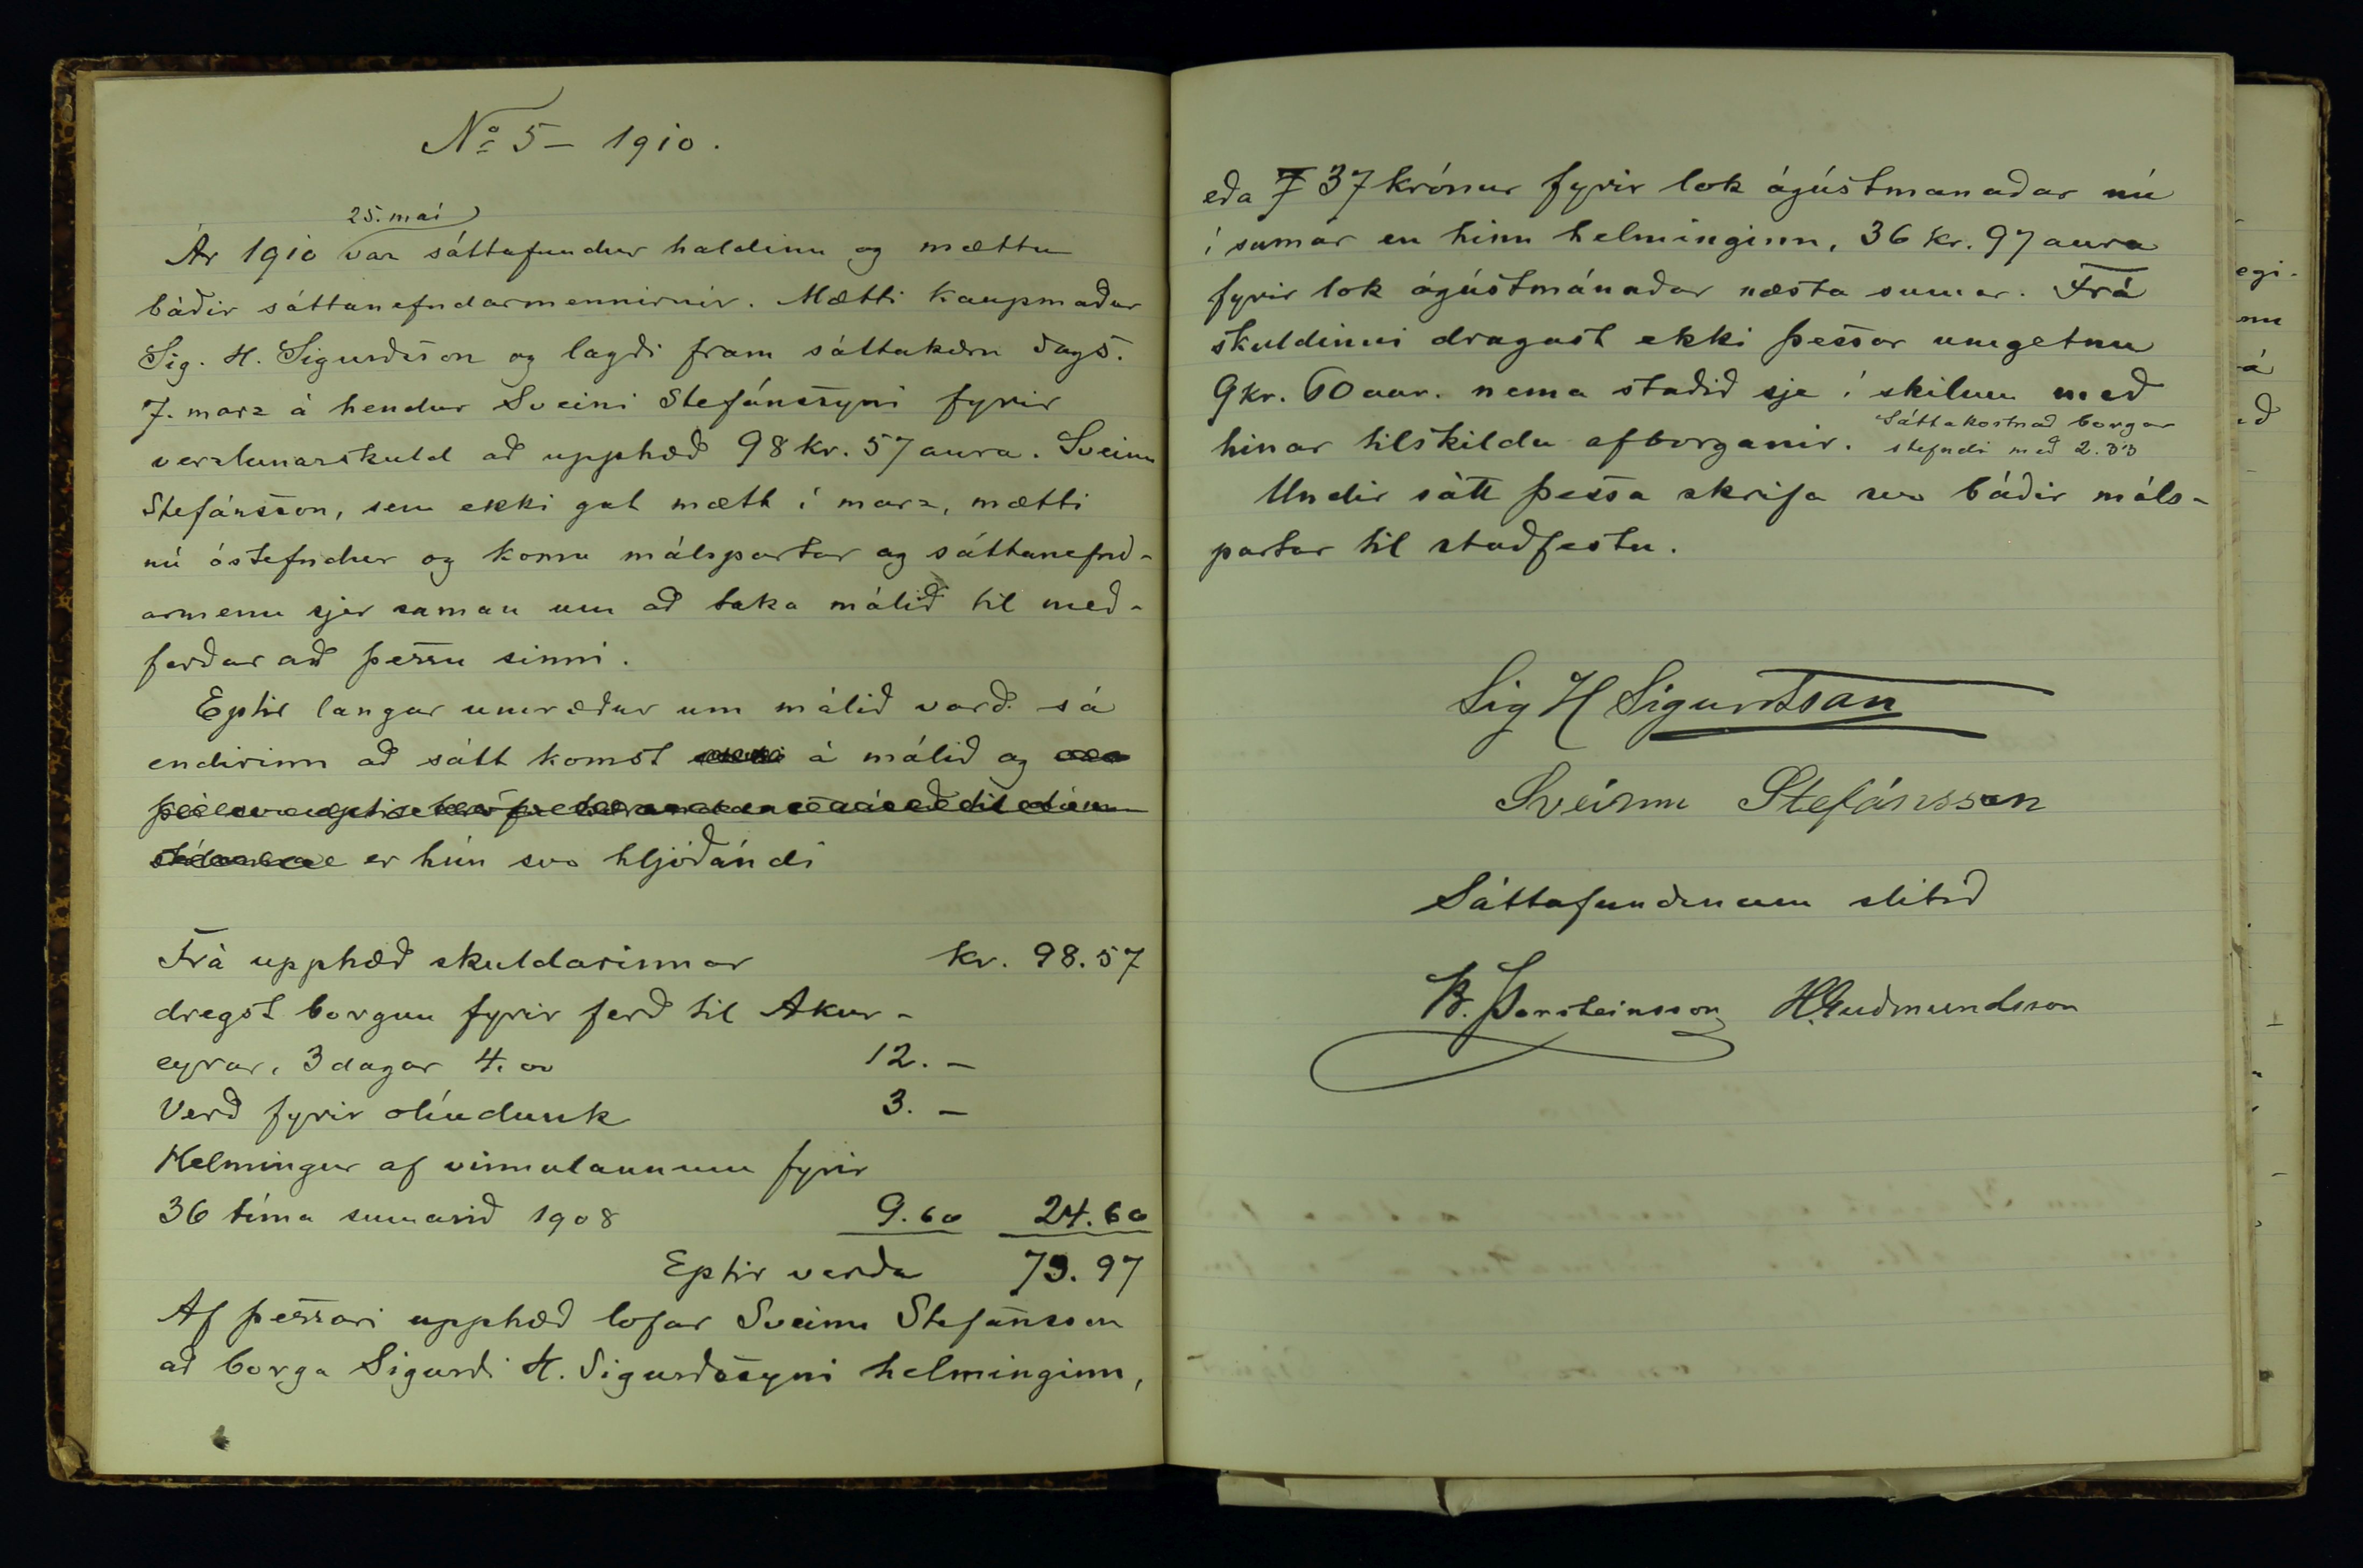 No 5 - 1910.
25. maí
Ár 1910 var sáttafundur haldinn og mættu
báðir sáttanefndarmennirnir. Mætti kaupmaður
Sig. H. Sigurðsson og lagði fram sáttakæru dags.
7. marz á hendur Sveini Stefánssyni fyrir
verzlunarskuld að upphæð 98 kr. 57 aura. Sveinn
Stefánsson, sem ekki gat mætt í marz, mætti
nú óstefndur og komu málspartar og sáttanefnd-
armenn sjer saman um að taka málið til með-
ferðar að þessu sinni.
Eptir langar umræður um málið varð sá
endirinn að sátt komst á málið og
er hún svo hljóðandi
Frá upphæð skuldarinnar kr. 98.57
dregst borgun fyrir ferð til Akur-
eyrar, 3 dagar 4.00 12. -
Verð fyrir olíudunk 3. -
Helmingur af vinnulaunum fyrir
36 tíma sumarið 1908 9.60 24.60
Eptir verða 73.97
Af þessari upphæð lofar Sveinn Stefánsson
að borga Sigurði H. Sigurðssyni helminginn,
eða 7 37 krónur fyrir lok ágústmanaðar nú
í sumar en hinn helminginn, 36 kr. 97 aura
fyrir lok ágústmánaðar næsta sumar. Frá
skuldinni dragast ekki þessar umgetnu
9 kr. 60 aur. nema staðið sje í skilum með
hinar tilskildu afborganir. Sáttakostnað borgar
stefndi með 2.33
Undir sátt þessa skrifa svo báðir máls-
partar til staðfestu.
Sig H Sigurdsson
Sveinn Stefánsson
Sáttafundinum slitið
B. Þorsteinsson H. Guðmundsson